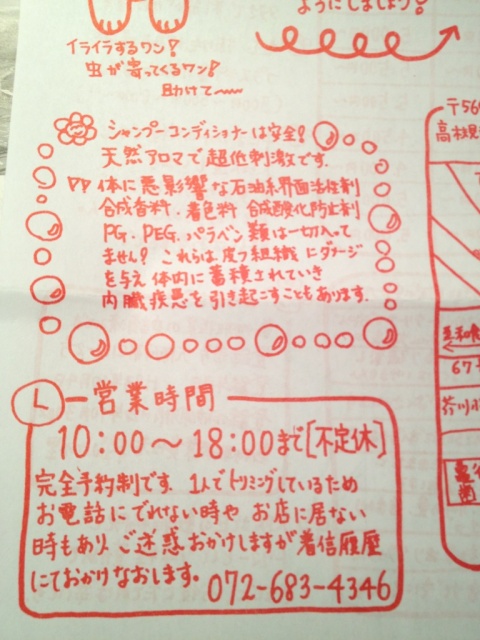 ようにしましょう!
イライラするワン!
虫が寄ってくるワン!
助けて〜
シャンプーコンディショナーは安全!
天然アロマで超低刺激です。
体に悪影響な石油系界面活性剤
合成香料、着色料、合成酸化防止剤
PG、PEG、パラベン類は一切入って
ません! これらは皮フ組織にダメージ
を与え体内に蓄積されていき
内臓疾患を引き起こすこともあります。
営業時間
10:00〜18:00まで[不定休]
完全予約制です。1人でトリミングしているため
お電話にでれない時や、お店に居ない
時もあり、ご迷惑おかけしますが着信履歴
にておかけなおします。072-683-4346
〒56
高槻
67
芥川